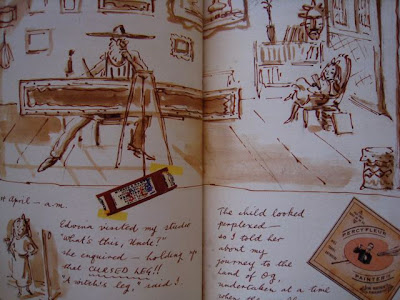 April – a.m.
Edwina visited my studio
"What's this, Uncle?"
she enquired – holding up
that CURSED LEG!!
"A witch's leg," said I
The child looked
perplexed –
so I told her
about my
journey to the
Land of Oz,
undertaken at a time
when the
PERCYFLEUR
PAINTER